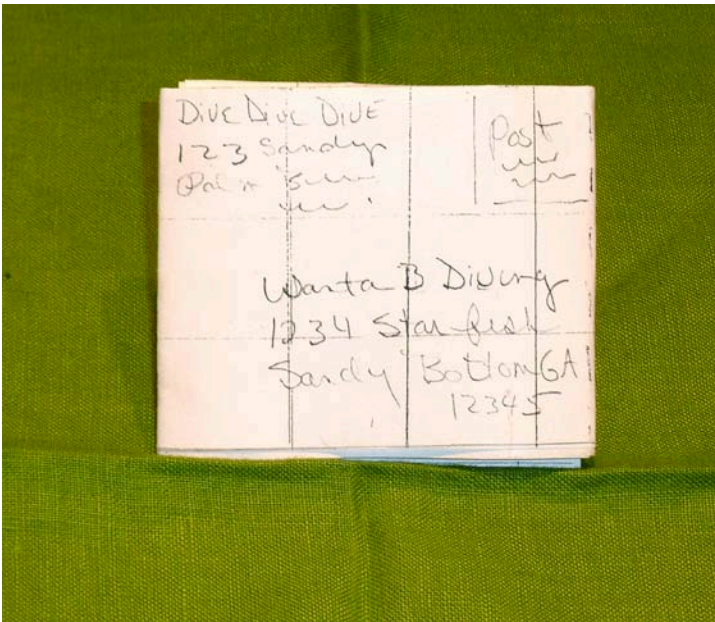 Dive Dive Dive
123 Sandy
Palm
Post
Wanta B Diving
1234 Starfish
Sandy Bottom GA
12345